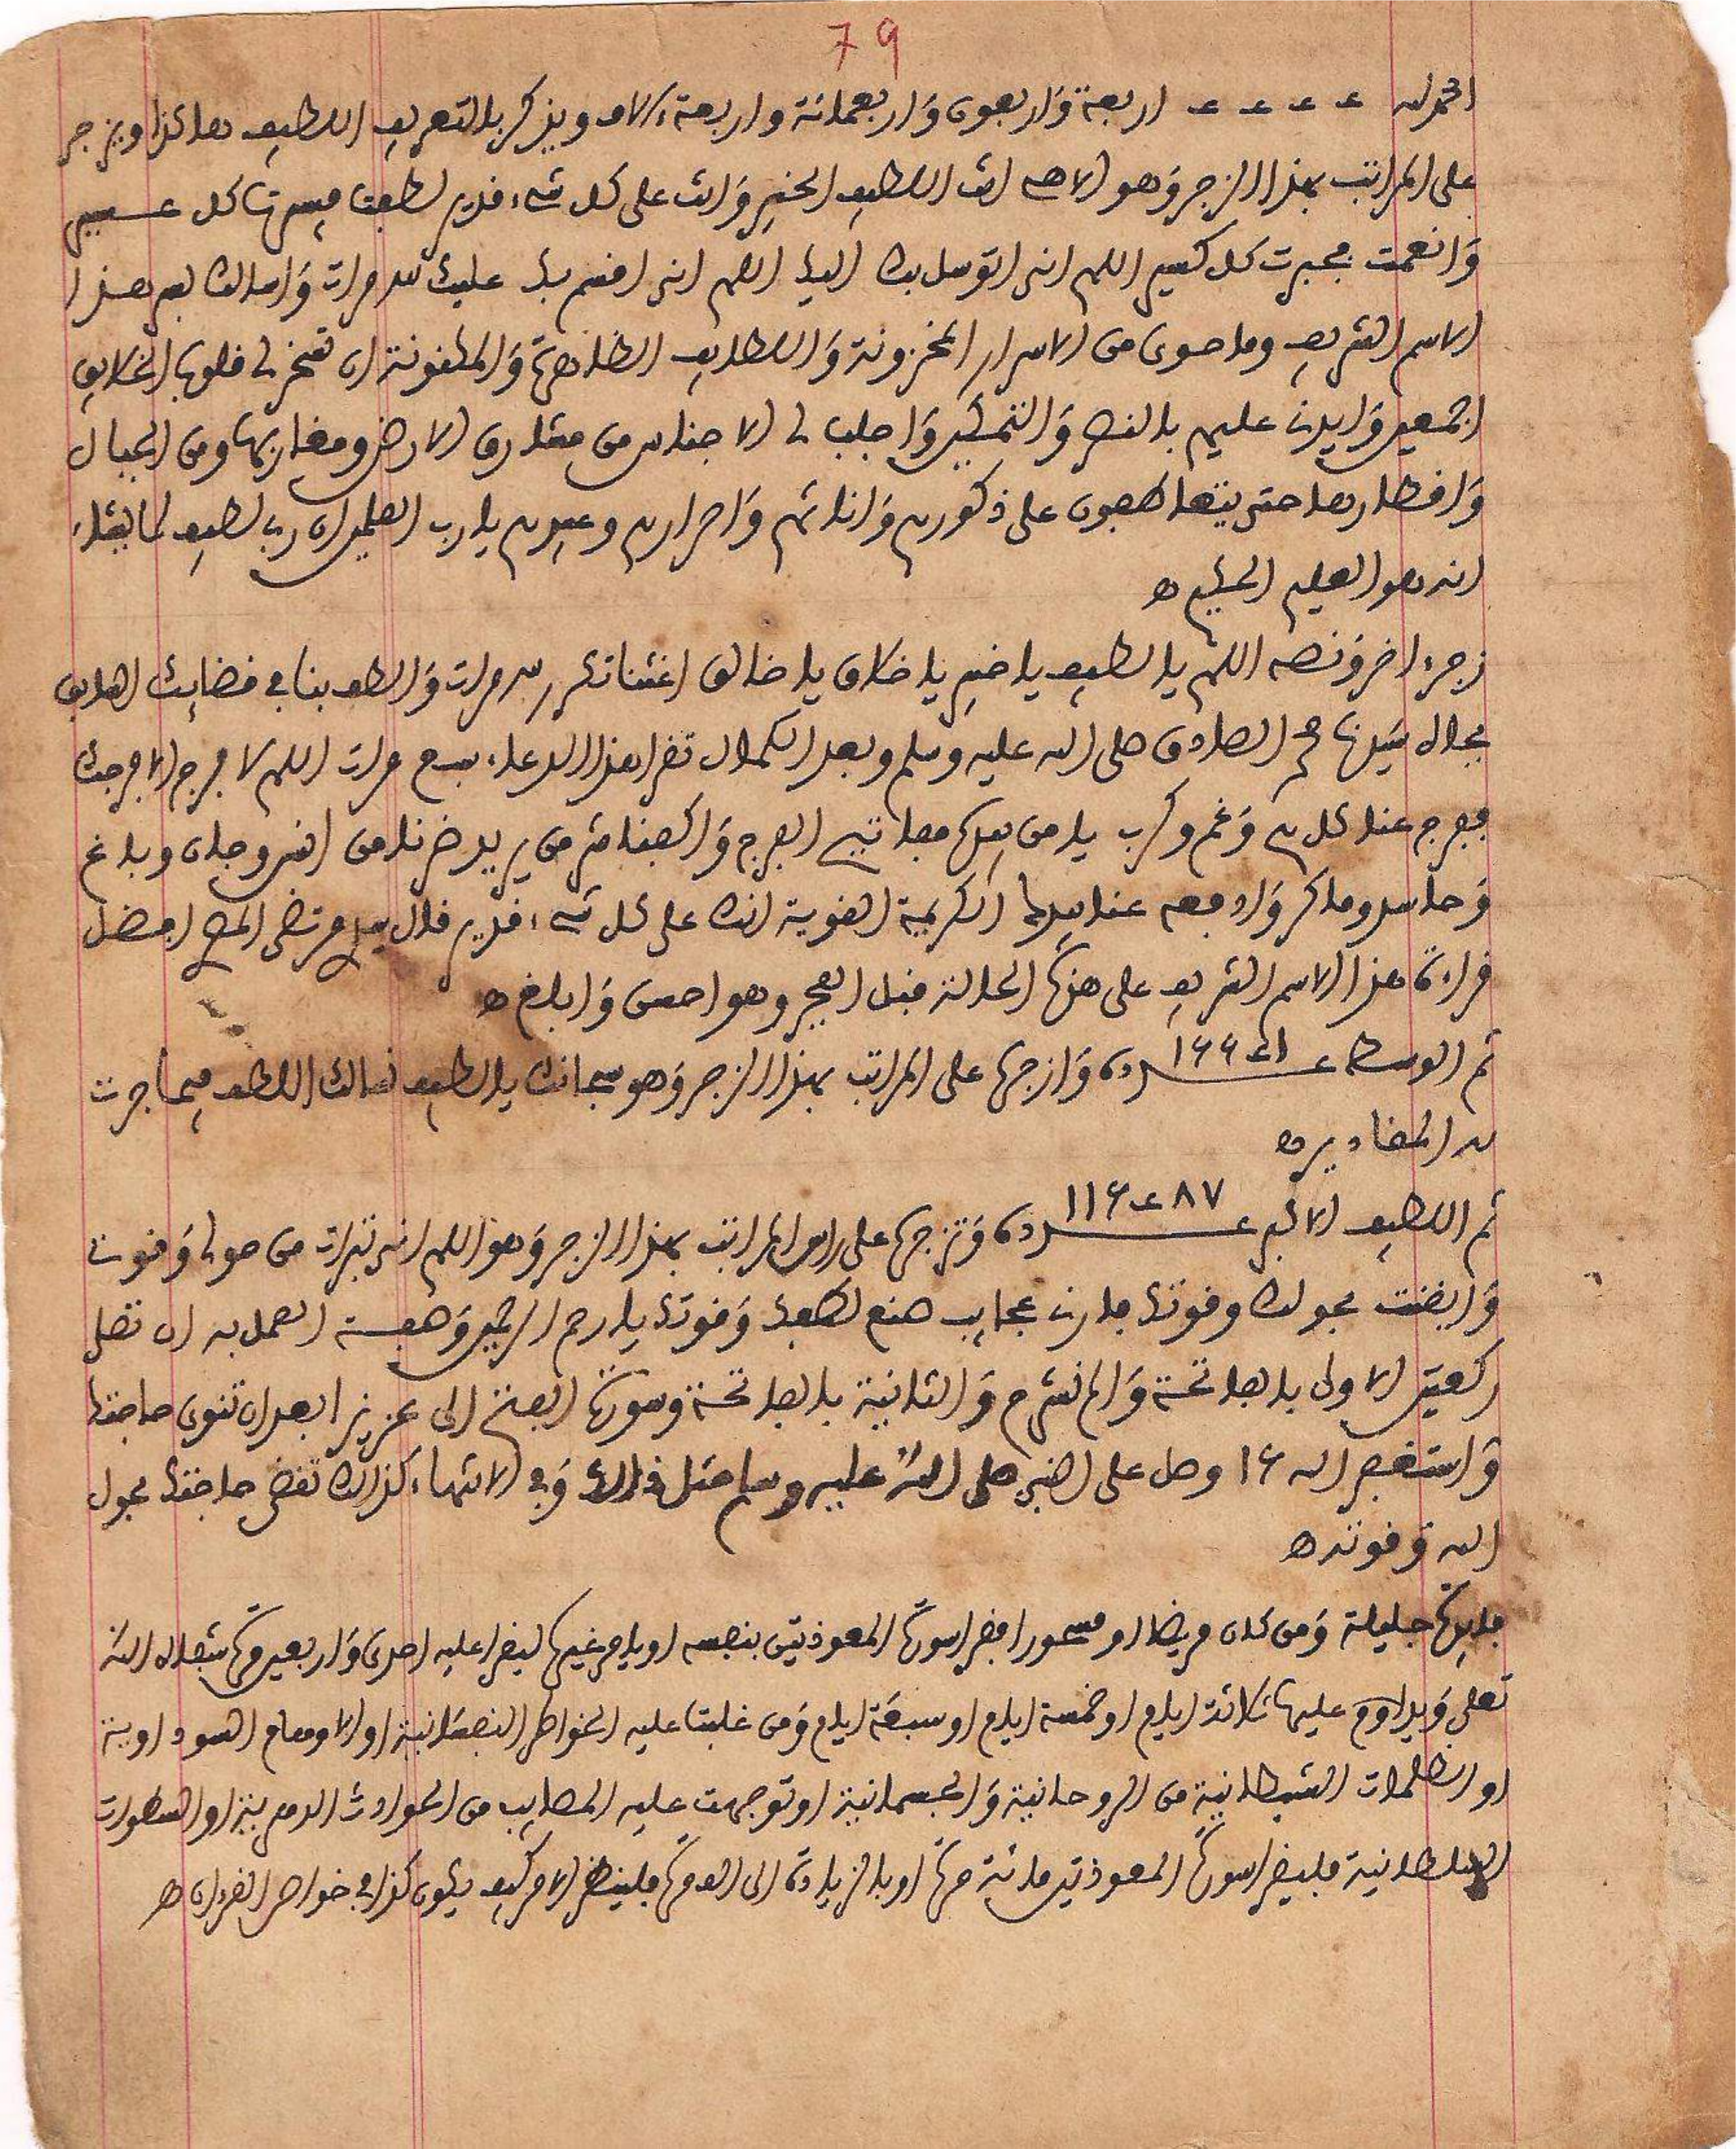 79
الحمد لله ـ ـ ـ ـ اربعة وَاربعون وَاربعمائة واربعة ءالاف ويذكر بالتعريف اللطيف هاكذا ويزجر
على المراتب بهذا الزجر وَهو الاهي انت اللطيف الخبير وَانت على كل شيء قدير لطفت فيسرت كل عسير
وَانعمت فجبرت كل كسير اللهم اني اتوسل بك اليك اللهم اني اقسم بك عليك مرات وَاسالك بسر هذا
الاسم الشريف وما حوى من الاسرار المخزونة وَاللطايف الظاهرة وَالمكنونة ان تسخر لي قلوب الخلايق
اجمعين وَايدني عليهم بالنصر وَالتمكين وَاجلب لي الاجناس من مشارق الارض ومغاربها ومن الجبال
وَاقطارها حتى يتعاطفون على ذكورهم وَاناثهم وَاحرارهم وعبيدهم يارب العلمين ان ربي لطيف لما يشاء
انه هو العليم الحكيم ه
زجر ءاخر وَنصه اللهم يا لطيف يا خبير يا خلاق يا خالق اغثنا تكرر مرات وَالطف بنا في قضايك السابق
بجاه سَيدنا محمد الصادق صلى الله عليه وسلم وبعد الكمال تقرا هذا الدعاء سبع مرات اللهم لا فرج الا فرجك
ففرج عنا كل هم وَغم وكرب يا من بيده مفاتيح الفرج وَاكفنا شر من يريد ضرنا من انس وجان وباغ
وَحاسد وماكر وَادفعه عنا بيدك الكريمة القوية انك على كل شيء قدير قال مرتضى افضل
قراءة هذا الاسم الشريف على هذه الحالة قبل الفجر وهو احسن وَابلغ ه
ثم الوسطى عدده وَازجره على المراتب بهذا الزجر وَهو سبحانك يا لطيف نسالك اللطف فيما جرت
به المقادير ه
ثم اللطيف الاكبر عدده وَتزجره على راس المراتب بهذا الزجر وَهو اللهم اني تبرات من حولي وَقوتي
وَايقنت بحولك وقوتك فارني عجايب صنع لطفك وَقوتك يا ارحم الراحمين وَصفة العمل به ان تصلي
ركعتين الاولى بالفاتحة وَالم نشرح وَالثانية بالفاتحة وسورة الفتح الى عزيزا بعد ان تنوي حاجتك
وَاستغفر الله ١٤ وصل على النبي صلى الله عليه وسلم مثل ذالك وَفي الانتهاء كذالك تقضى حاجتك بحول
الله وَقوته ه
فايدة جليلة وَمن كان مريضا او مسحورا فقرا سورة المعوذتين بنفسه او يامر غيره ليقرا عليه احدى وَاربعين مرة شفاه الله
تعلى وَيداوم عليها ثلاثة ايام او خمسة ايام او سبعَة ايام وَمن غلبت عليه الخواطر النفسانية او الاوهام السوداوية
او الظلمات الشيطانية من الروحانية وَالجسمانية او توجهت عليه المصايب من الحوادث او السطوات
السلطانية فليقرا سورة المعوذتين مائة مرة او بالزيادة الى الف مرة فلينظر الامر كيف يكون كذا في خواص القرءان ه